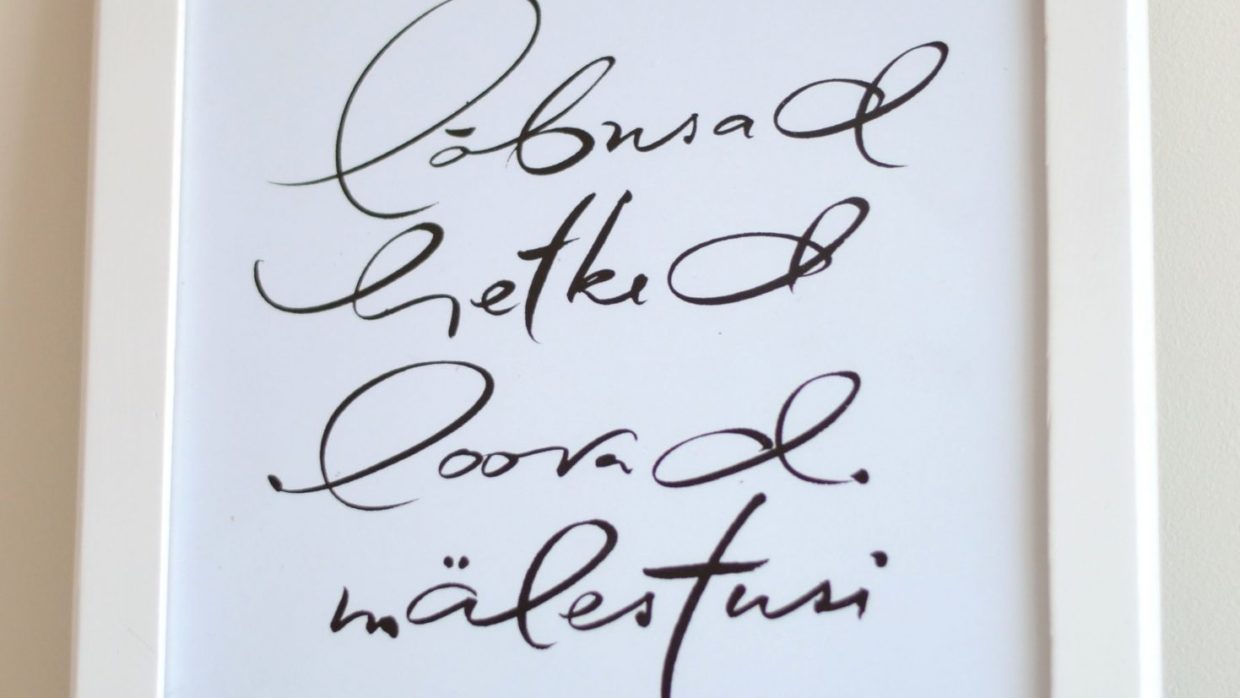 lõbusad
hetked
loovad
mälestusi